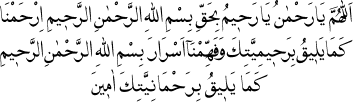 اَللّٰهُمَّ يَا رَحْمٰنُ يَا رَحِيمُ بِحَقِّ بِسْمِ اللهِ الرَّحْمٰنِ الرَّحِيمِ اِرْحَمْنَا
كَمَا يَلِيقُ بِرَحِيمِيَّتِكَ وَفَهِّمْنَا اَسْرَارَ بِسْمِ اللهِ الرَّحْمٰنِ الرَّحِيمِ
كَمَا يَلِيقُ بِرَحْمَانِيَّتِكَ اٰمِينَ